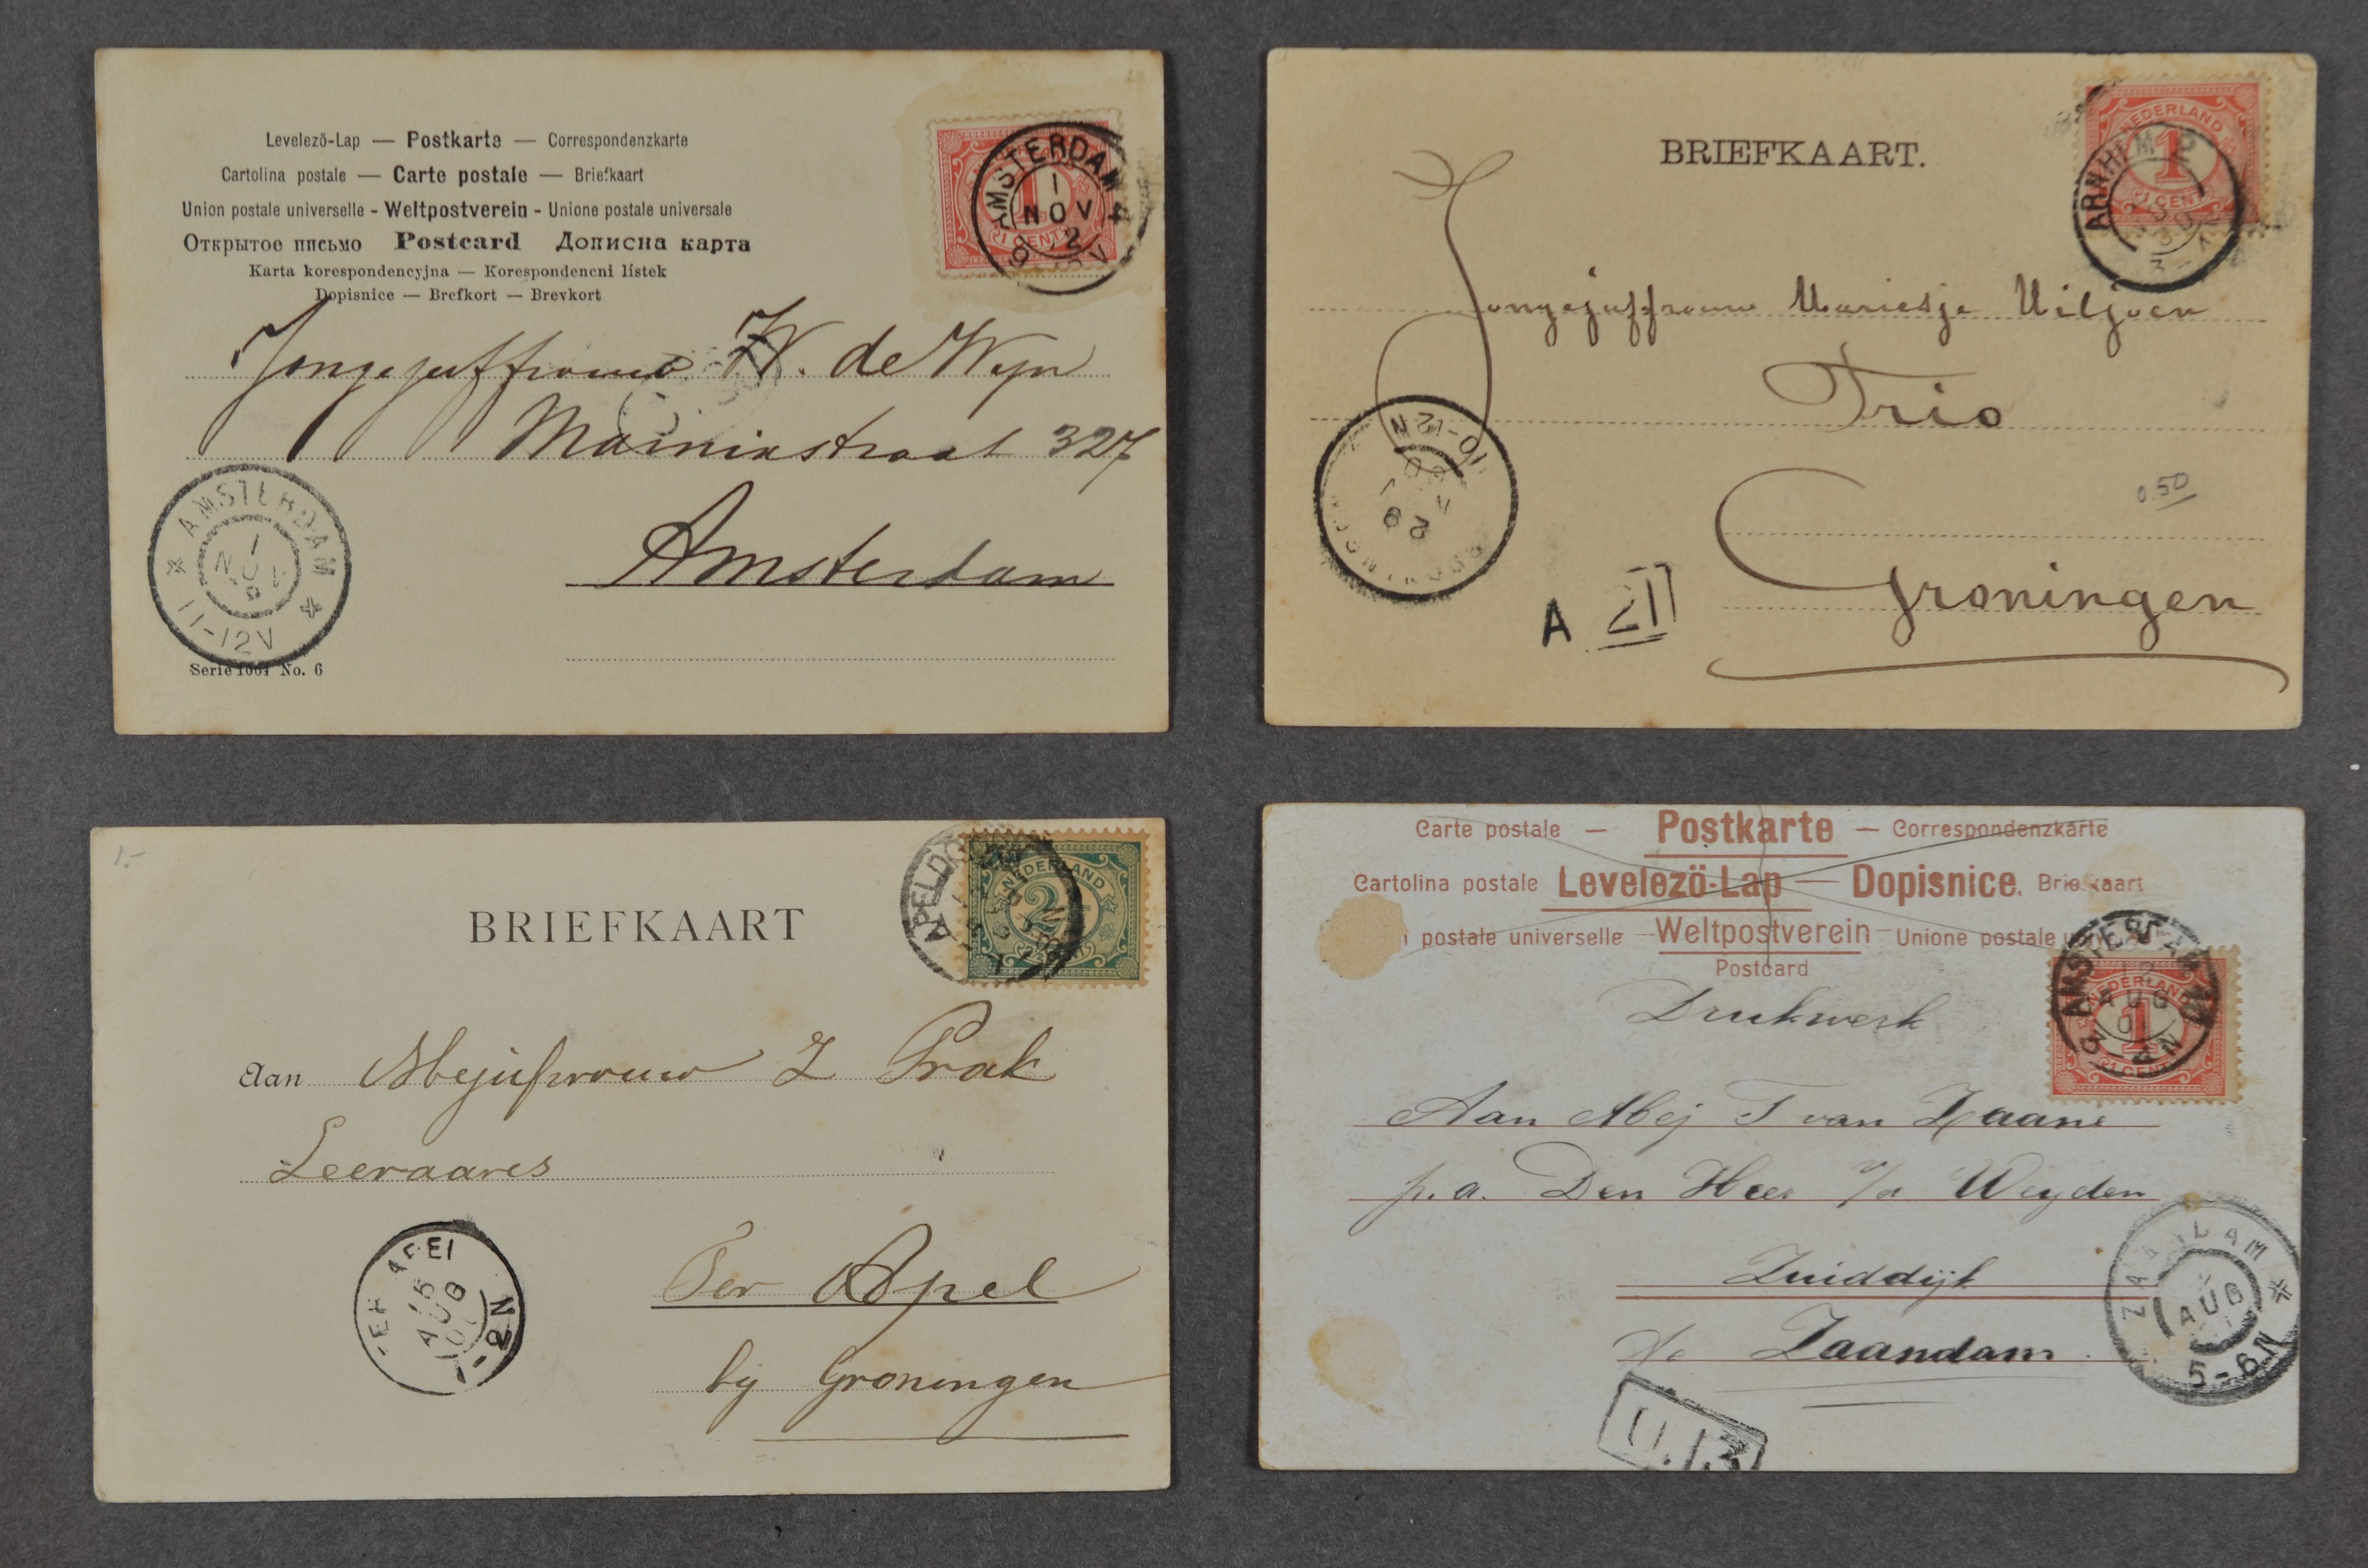 Levelező-Lap — Postkarte — Correspondenzkarte
Cartolina postale — Carte postale — Briefkaart
Union postale universelle - Weltpostverein - Unione postale universale
Открытое письмо Postcard Дописна карта
Karta korespondencyjna — Korespondencni lístek
Dopisnice — Brefkort — Brevkort
AMSTERDAM 4
1
NOV
2
Jongejuffrouw W. de Wyn
Marnixstraat 327
Amsterdam
AMSTERDAM
1
NOV
11-12V
Serie 1004 No. 6
BRIEFKAART.
NEDERLAND
1
1 CENT
ARNHEM
Jongejuffrouw Mariesje Viljoen
Trio
Groningen
0.50
10-12N
29
A 21
1.-
BRIEFKAART
NEDERLAND
2½
APELDOORN
Aan Mejufvrouw Z Prak
Leerares
Ter Apel
by Groningen
TER APEL
15
AUG
1-2N
Carte postale — Postkarte — Correspondenzkarte
Cartolina postale Levelező-Lap — Dopisnice. Briefkaart
postale universelle — Weltpostverein — Unione postale
Postcard
Drukwerk
AMSTERDAM
AUG
NEDERLAND
1
1 CENT
Aan Mej T van Zaane
p.a. Den Heer v/d Weyden
Zuiddijk
Te Zaandam.
ZAANDAM
AUG
5-6N
U.13